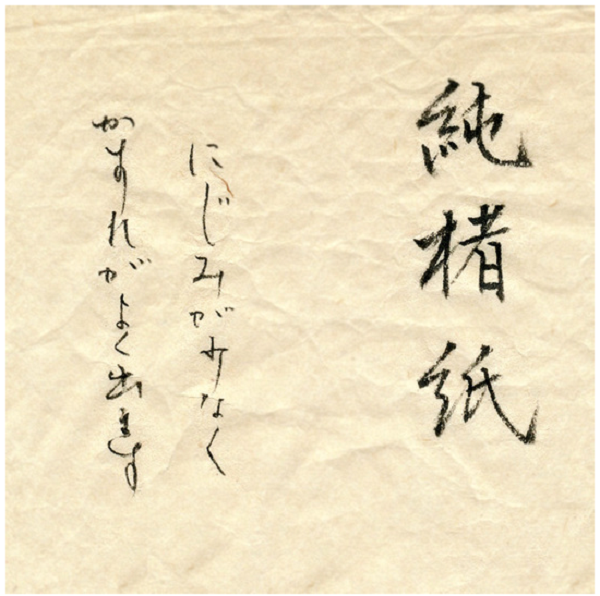 純楮紙
にじみが少なく
かすれがよく出ます